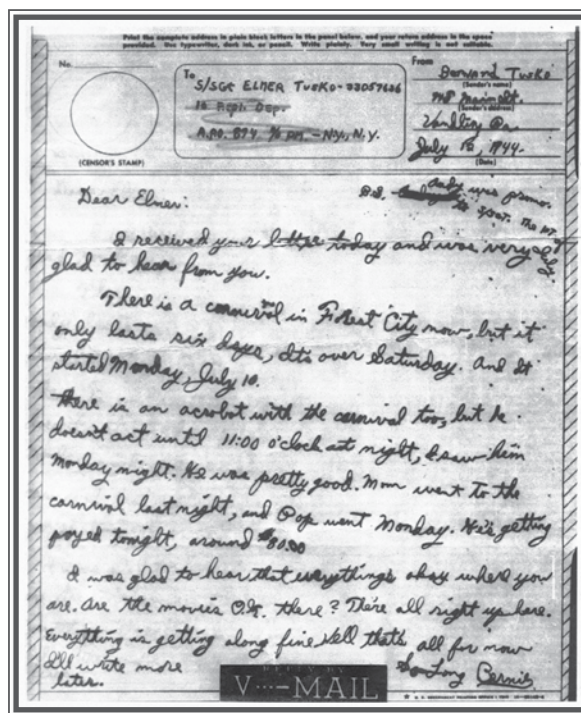 Print the complete address in plain block letters in the panel below, and your return address in the space
provided. Use typewriter, dark ink, or pencil. Write plainly. Very small writing is not suitable.
No.
(CENSOR'S STAMP)
To
S/SGT ELMER TUSKO-33057626
A.P.O. 874 % P.M. - N.Y., N.Y.
From
Bernard Tusko
(Sender's name)
(Sender's address)
Vandling Pa.
July 12, 1944.
(Date)
P.S. was promo.
Dear Elmer:
I received your letter today and was very
glad to hear from you.
There is a carnival in Forest City now, but it
only lasts six days, It's over Saturday. And It
started Monday, July 10.
There is an acrobot with the carnival too, but he
doesn't act until 11:00 o'clock at night, I saw him
Monday night. He was pretty good. Mom went to the
carnival last night, and Pop went Monday. He's getting
payed tonight, around $80.00
I was glad to hear that everythings okay where you
are. Are the movies O.K. there? There all right up here.
Everything is getting along fine. Well that's all for now
I'll write more
later.
So Long Bernie
REPLY BY
V···—MAIL